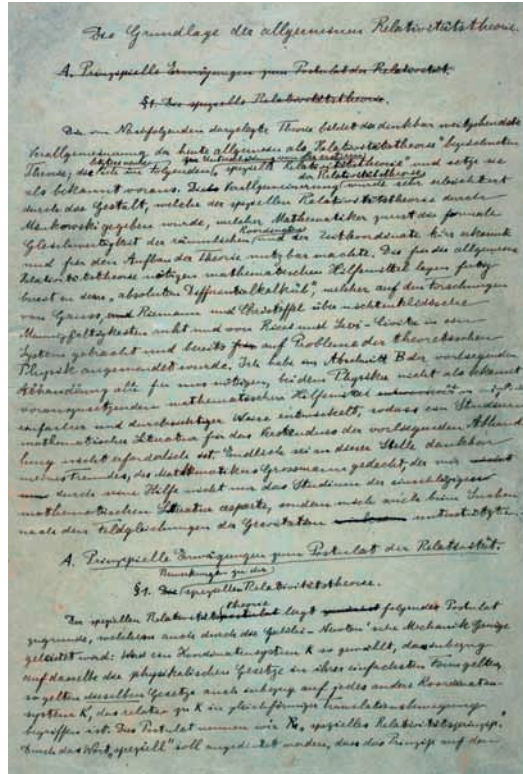 Die Grundlage der allgemeinen Relativitätstheorie.
A. Prinzipielle Erwägungen zum Postulat der Relativität.
§1. Die spezielle Relativitätstheorie.
Die im Nachfolgenden dargelegte Theorie bildet die denkbar weitgehendste
Verallgemeinerung der heute allgemein als "Relativitätstheorie" bezeichneten
Theorie; die im folgenden "spezielle Relativitätstheorie" und setze sie
als bekannt voraus. Die Verallgemeinerung der Relativitätstheorie wurde sehr erleichtert
durch die Gestalt, welche der speziellen Relativitätstheorie durch
Minkowski gegeben wurde, welcher Mathematiker zuerst die formale
Gleichwertigkeit der räumlichen Koordinaten und der Zeitkoordinate klar erkannte
und für den Aufbau der Theorie nutzbar machte. Die für die allgemeine
Relativitätstheorie nötigen mathematischen Hilfsmittel lagen fertig
bereit in dem "absoluten Differentialkalkül", welcher auf den Forschungen
von Gauss, und Riemann und Christoffel über nichteuklidische
Mannigfaltigkeiten ruht und von Ricci und Levi-Civita in ein
System gebracht und bereits auf Probleme der theoretischen
Physik angewendet wurde. Ich habe im Abschnitt B der vorliegenden
Abhandlung alle für uns nötigen, bei dem Physiker nicht als bekannt
vorauszusetzenden mathematischen Hilfsmittel entwickelt in
einfacher und durchsichtiger Weise entwickelt, sodass ein Studium
mathematischer Literatur für das Verständnis der vorliegenden Abhand-
lung nicht erforderlich ist. Endlich sei an dieser Stelle dankbar
meines Freundes, des Mathematikers Grossmann gedacht, der mir
durch seine Hilfe nicht nur das Studium der einschlägigen
mathematischen Literatur ersparte, sondern mich auch beim Suchen
nach den Feldgleichungen der Gravitation unterstützte.
A. Prinzipielle Erwägungen zum Postulat der Relativität.
§1. Die Bemerkungen zu der speziellen Relativitätstheorie.
Der speziellen Relativitätstheorie liegt folgendes Postulat
zugrunde, welchem auch durch die Galilei-Newton'sche Mechanik Genüge
geleistet wird: Wird ein Koordinatensystem K so gewählt, dass inbezug
auf dasselbe die physikalischen Gesetze in ihrer einfachsten Form gelten,
so gelten dieselben Gesetze auch inbezug auf jedes andere Koordinaten-
system K', das relativ zu K in gleichförmiger Translationsbewegung
begriffen ist. Dies Postulat nennen wir "spezielles Relativitätsprinzip."
Durch das Wort "speziell" soll angedeutet werden, dass das Prinzip auf den